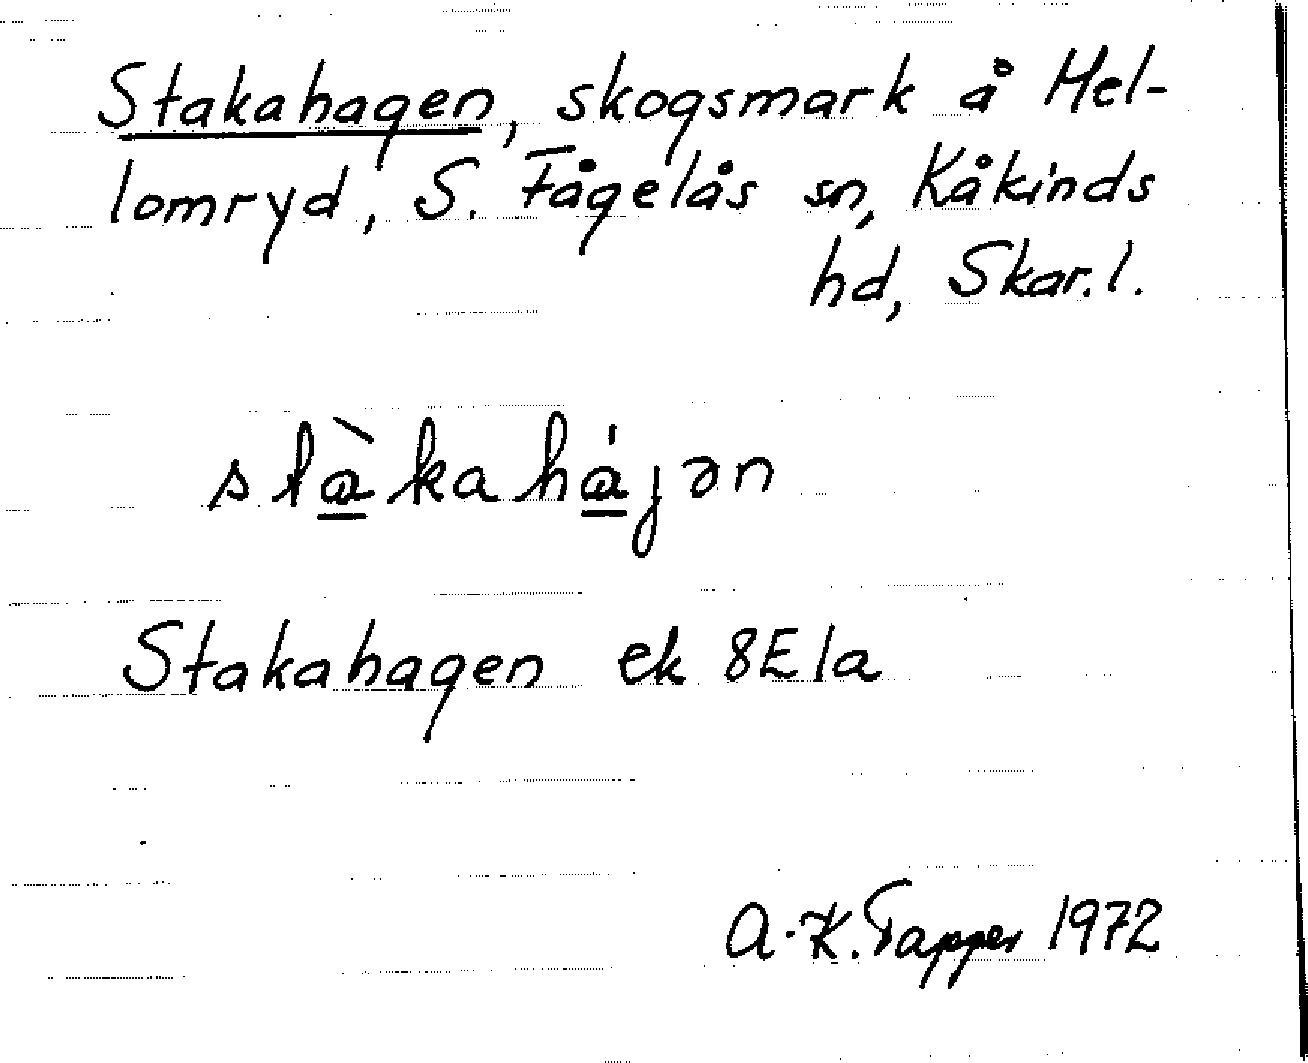 Stakahagen, skogsmark å Hel-
lomryd, S. Fågelås sn, Kåkinds
hd, Skar.l.
stὰ̱kahά̱jən
Stakahagen ek 8E1a
A.-K. Tapper 1972